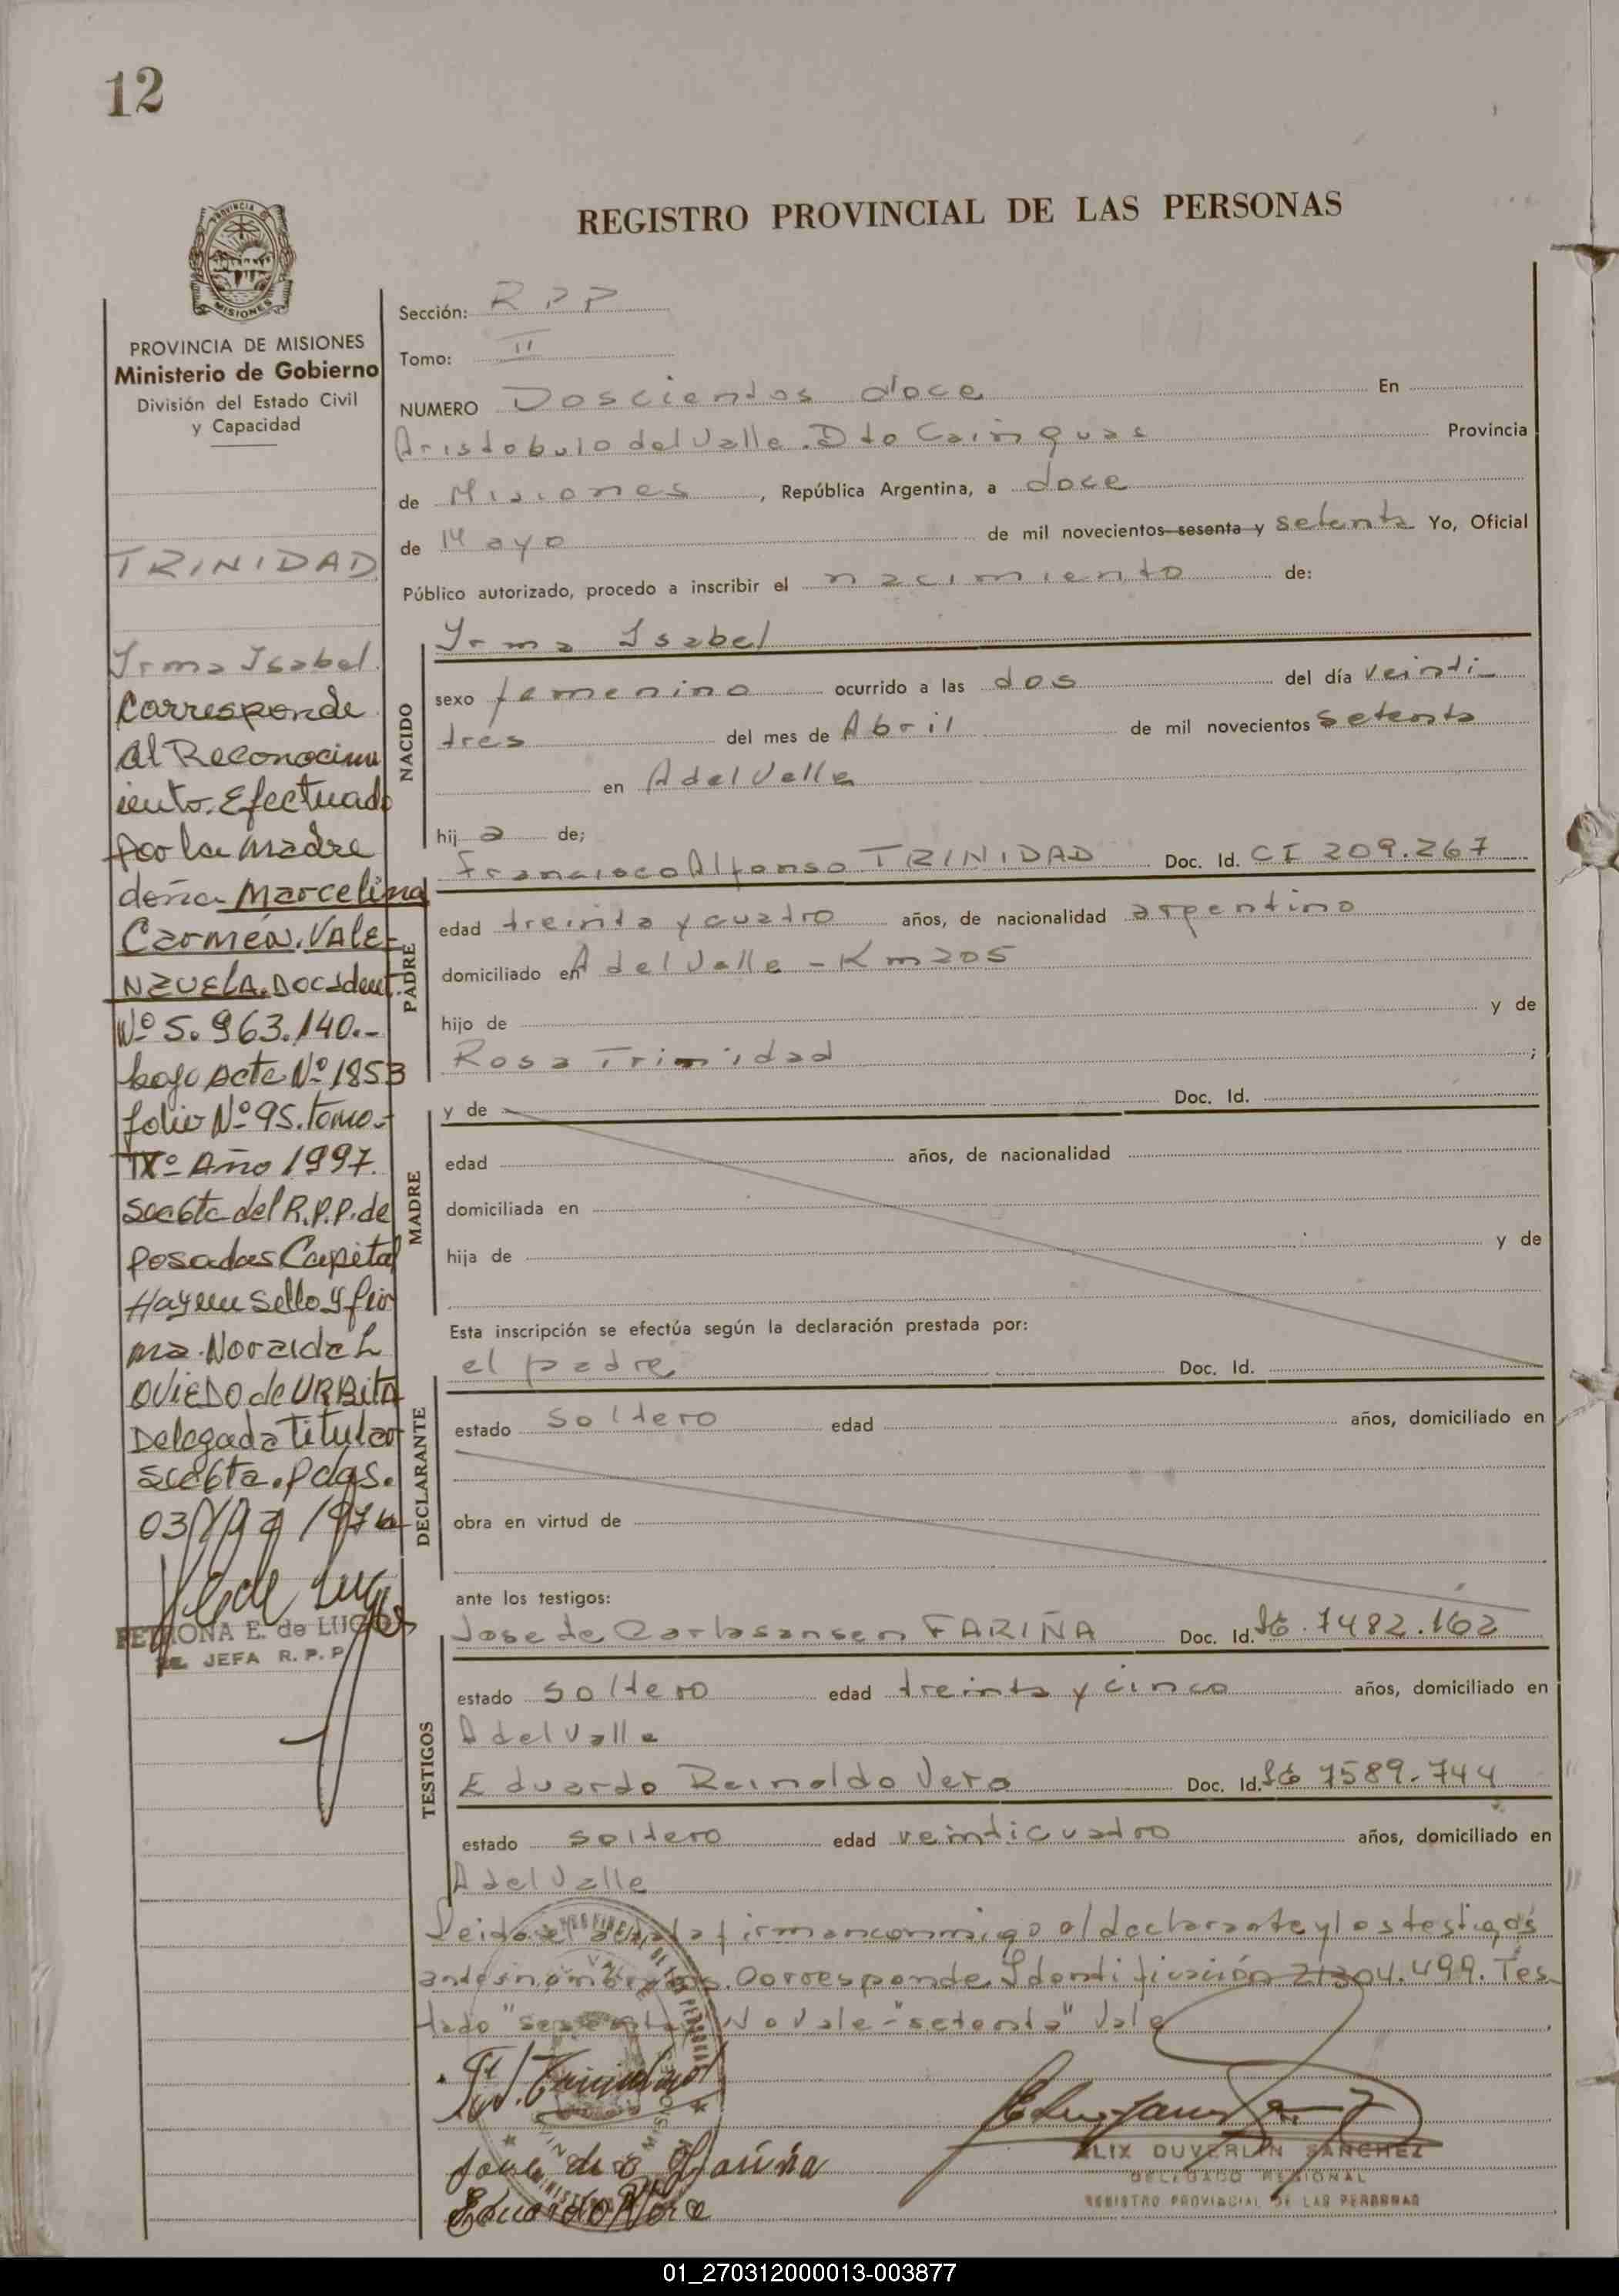 12
PROVINCIA
MISIONES
PROVINCIA DE MISIONES
Ministerio de Gobierno
División del Estado Civil
y Capacidad
TRINIDAD
Yrma Ysabel
Corresponde
al Reconocimi
iento. Efectuado
por la madre
doña Marcelina
Carmen. VALE-
NZUELA. Doc. Ident.
Nº 5.963.140.-
bajo Acta Nº 1853
folio Nº 95. tomo-
IXº Año 1997.
Secc 6ta del R.P.P. de
Posadas Capital
Hay un sello y fir
ma. Noraida L
OVIEDO de URBITA
Delegada Titular
Scc 6ta. Pdas.
PETRONA E. de LUGO
JEFA R. P. P.
REGISTRO PROVINCIAL DE LAS PERSONAS
Sección: R P P
Tomo: II
NUMERO Doscientos doce En
Aristobulo del Valle. Dto Cainguas Provincia
de Misiones, República Argentina, a doce
de Mayo de mil novecientos sesenta y setenta Yo, Oficial
Público autorizado, procedo a inscribir el nacimiento de:
Yrma Ysabel
NACIDO
sexo femenino ocurrido a las dos del día veinti
tres del mes de Abril de mil novecientos setenta
en A del Valle
hija de;
Francisco Alfonso TRINIDAD Doc. Id. CI 209.267
PADRE
edad treinta y cuatro años, de nacionalidad argentino
domiciliado en A del Valle - Km 205
hijo de y de
Rosa Trinidad ;
MADRE
y de Doc. Id.
edad años, de nacionalidad
domiciliada en
hija de y de
Esta inscripción se efectúa según la declaración prestada por:
el padre Doc. Id.
DECLARANTE
estado soltero edad años, domiciliado en
obra en virtud de
ante los testigos:
Jose de Carlasansen FARIÑA Doc. Id. 7482.162
TESTIGOS
estado soltero edad treinta y cinco años, domiciliado en
A del Valle
Eduardo Reinaldo Vera Doc. Id. 7589.744
estado soltero edad veinticuatro años, domiciliado en
A del Valle
Leida el acta la firman conmigo el declarante y los testigos
antes nombrados. Corresponde Ydentificación 21304.499. Tes
tado "sesenta" No Vale - "setenta" Vale
Trinidad
Fariña
Eduardo Vera
ELIX DUVERLIN SANCHEZ
DELEGADO REGIONAL
REGISTRO PROVINCIAL DE LAS PERSONAS
01_270312000013-003877